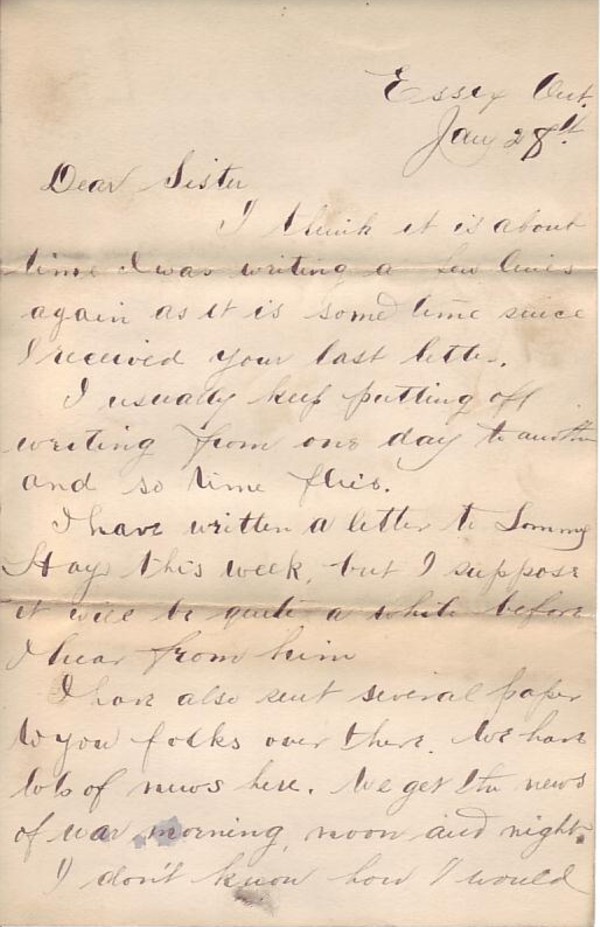 Essex Ont.
Jan 28th.
Dear Sister
I think it is about
time I was writing a few lines
again as it is some time since
I received your last letter.
I usually keep putting off
writing from one day to another
and so time flies.
I have written a letter to Tommy
Hay this week, but I suppose
it will be quite a while before
I hear from him
I have also sent several paper
to you folks over there. We have
lots of news here. We get the news
of war morning, noon and night.
I don't know how I would